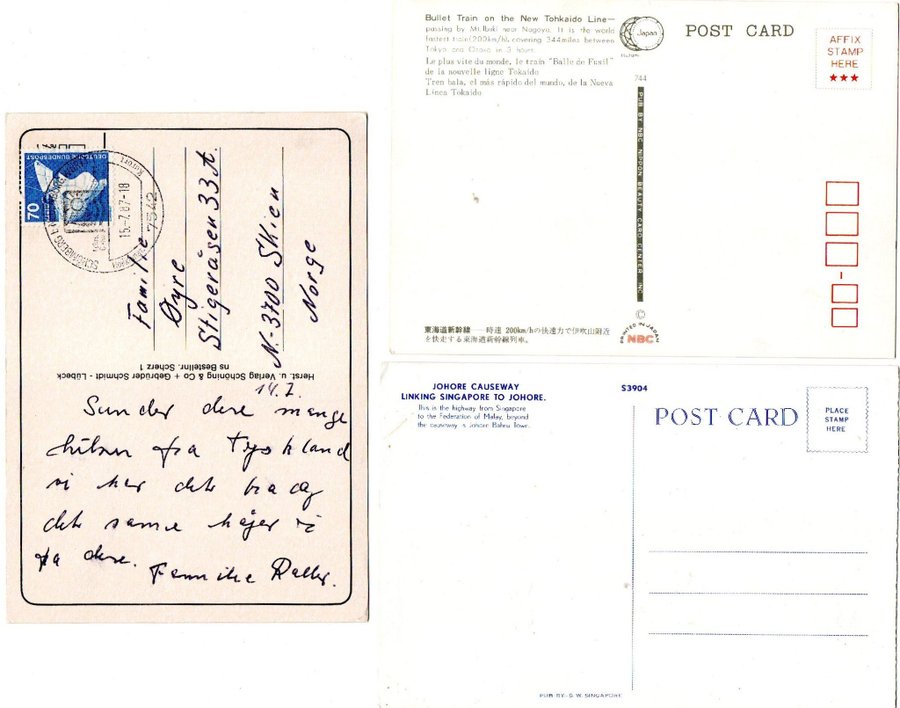 DEUTSCHE BUNDESPOST
70
15.-7.87-18
7542
Familie
Øyre
Stigeråsen 33A.
N.-3700 Skien
Norge
Herst. u. Verlag Schöning & Co + Gebrüder Schmidt - Lübeck
ns Bestellnr. Scherz 1
14.7.
Sender dere mange
fra Tyskland
vi har det bra og
det samme håper vi
på dere. Familie
Bullet Train on the New Tohkaido Line—
passing by Mt. Ibuki near Nagoya. It is the world
fastest train(200km/h), covering 344miles between
Tokyo and Osaka in 3 hours.
Le plus vite du monde, le train "Balle de Fusil"
de la nouvelle ligne Tokaido
Tren bala, el más rápido del mundo, de la Nueva
Línea Tokaido
Japan
POST CARD
AFFIX
STAMP
HERE
★★★
744
PUB BY NBC-NIPPON BEAUTY CARD CENTER INC
©
PRINTED IN JAPAN
NBC
東海道新幹線——時速 200km/hの快速力で伊吹山附近
を快走する東海道新幹線列車。
JOHORE CAUSEWAY
LINKING SINGAPORE TO JOHORE.
This is the highway from Singapore
to the Federation of Malay, beyond
the causeway is Johore Bahru Town.
S3904
POST CARD
PLACE
STAMP
HERE
PUB BY: S. W. SINGAPORE